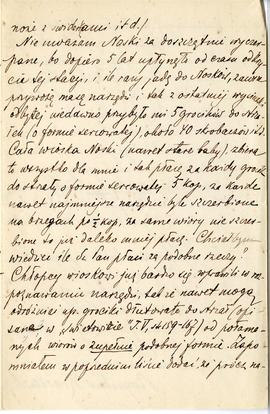 noże z świdrami i t.d.)
Nie uważam Noski za doszczętnie wyczer-
pane, bo dopiero 5 lat upłynęło od czasu odkry-
cia tej stacji, i ile razy jadę do Nosków, zawsze
przywożę masę narzędzi i tak z ostatniej wycieczki
odbytej niedawno przybyło mi 5 grocików do
strzał (o formie sercowatej), około 40 skrobaczów i t.d.
Cała wioska Noski (nawet stare baby) zbiera
to wszystko dla mnie i tak płacę za każdy grocik
do strzały o formie sercowatej 5 kop, za każde
nawet najmniejsze narzędzie byle szczerbione
na brzegach po ½ kop, za same wióry nie szczer-
bione to już daleko mniej płacę. Chciałbym
wiedzieć ile Sz. Pan płaci za podobne rzeczy?
Chłopcy wioskowi już bardzo się wprawili w roz-
poznawaniu narzędzi, tak że nawet mogą
odróżniać np. grociki dłutowate do strzał (opi-
sane w "Światowicie" T. V, str. 159-16) od połama-
nych wiórów o zupełnie podobnej formie. Zapo-
mniałem w poprzednim liście dodać, że prócz na-